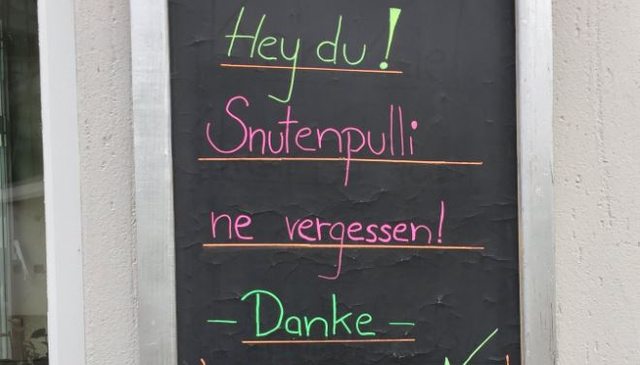 Hey du!
Snutenpulli
ne vergessen!
- Danke -